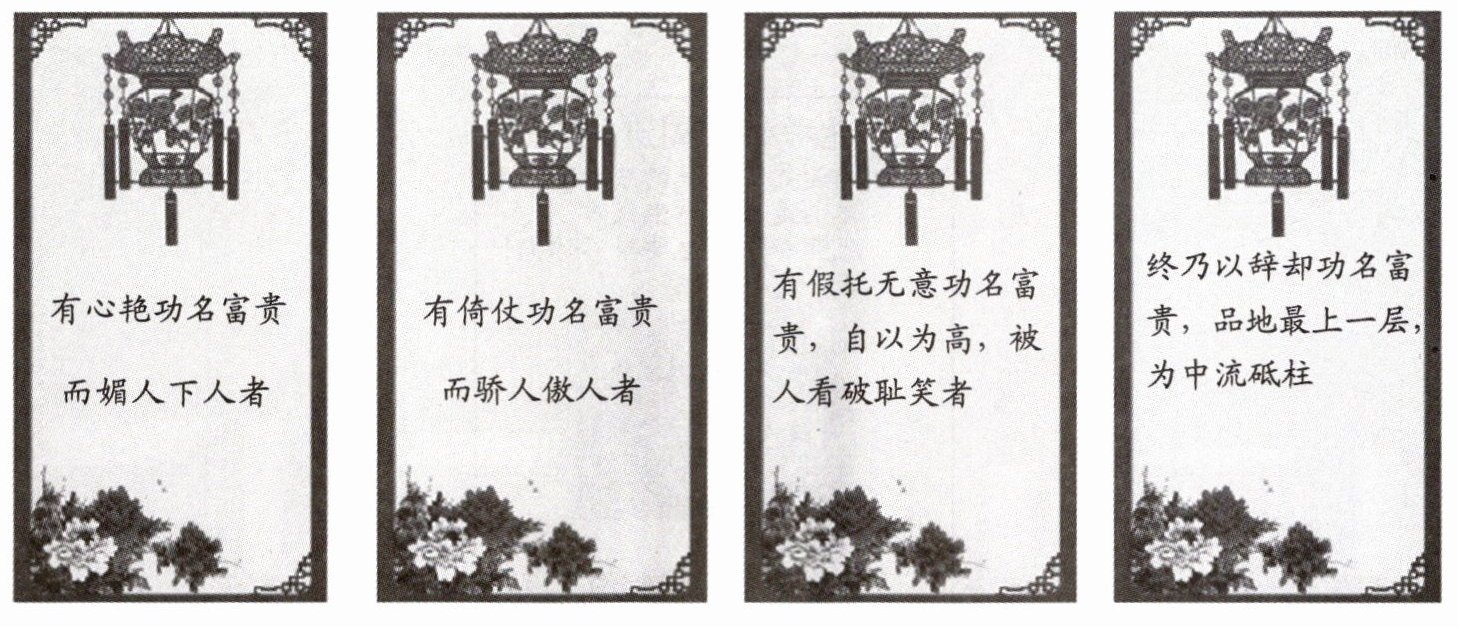 有心艳功名富贵
而媚人下人者
有倚仗功名富贵
而骄人傲人者
有假托无意功名富
贵，自以为高，被
人看破耻笑者
终乃以辞却功名富
贵，品地最上一层，
为中流砥柱